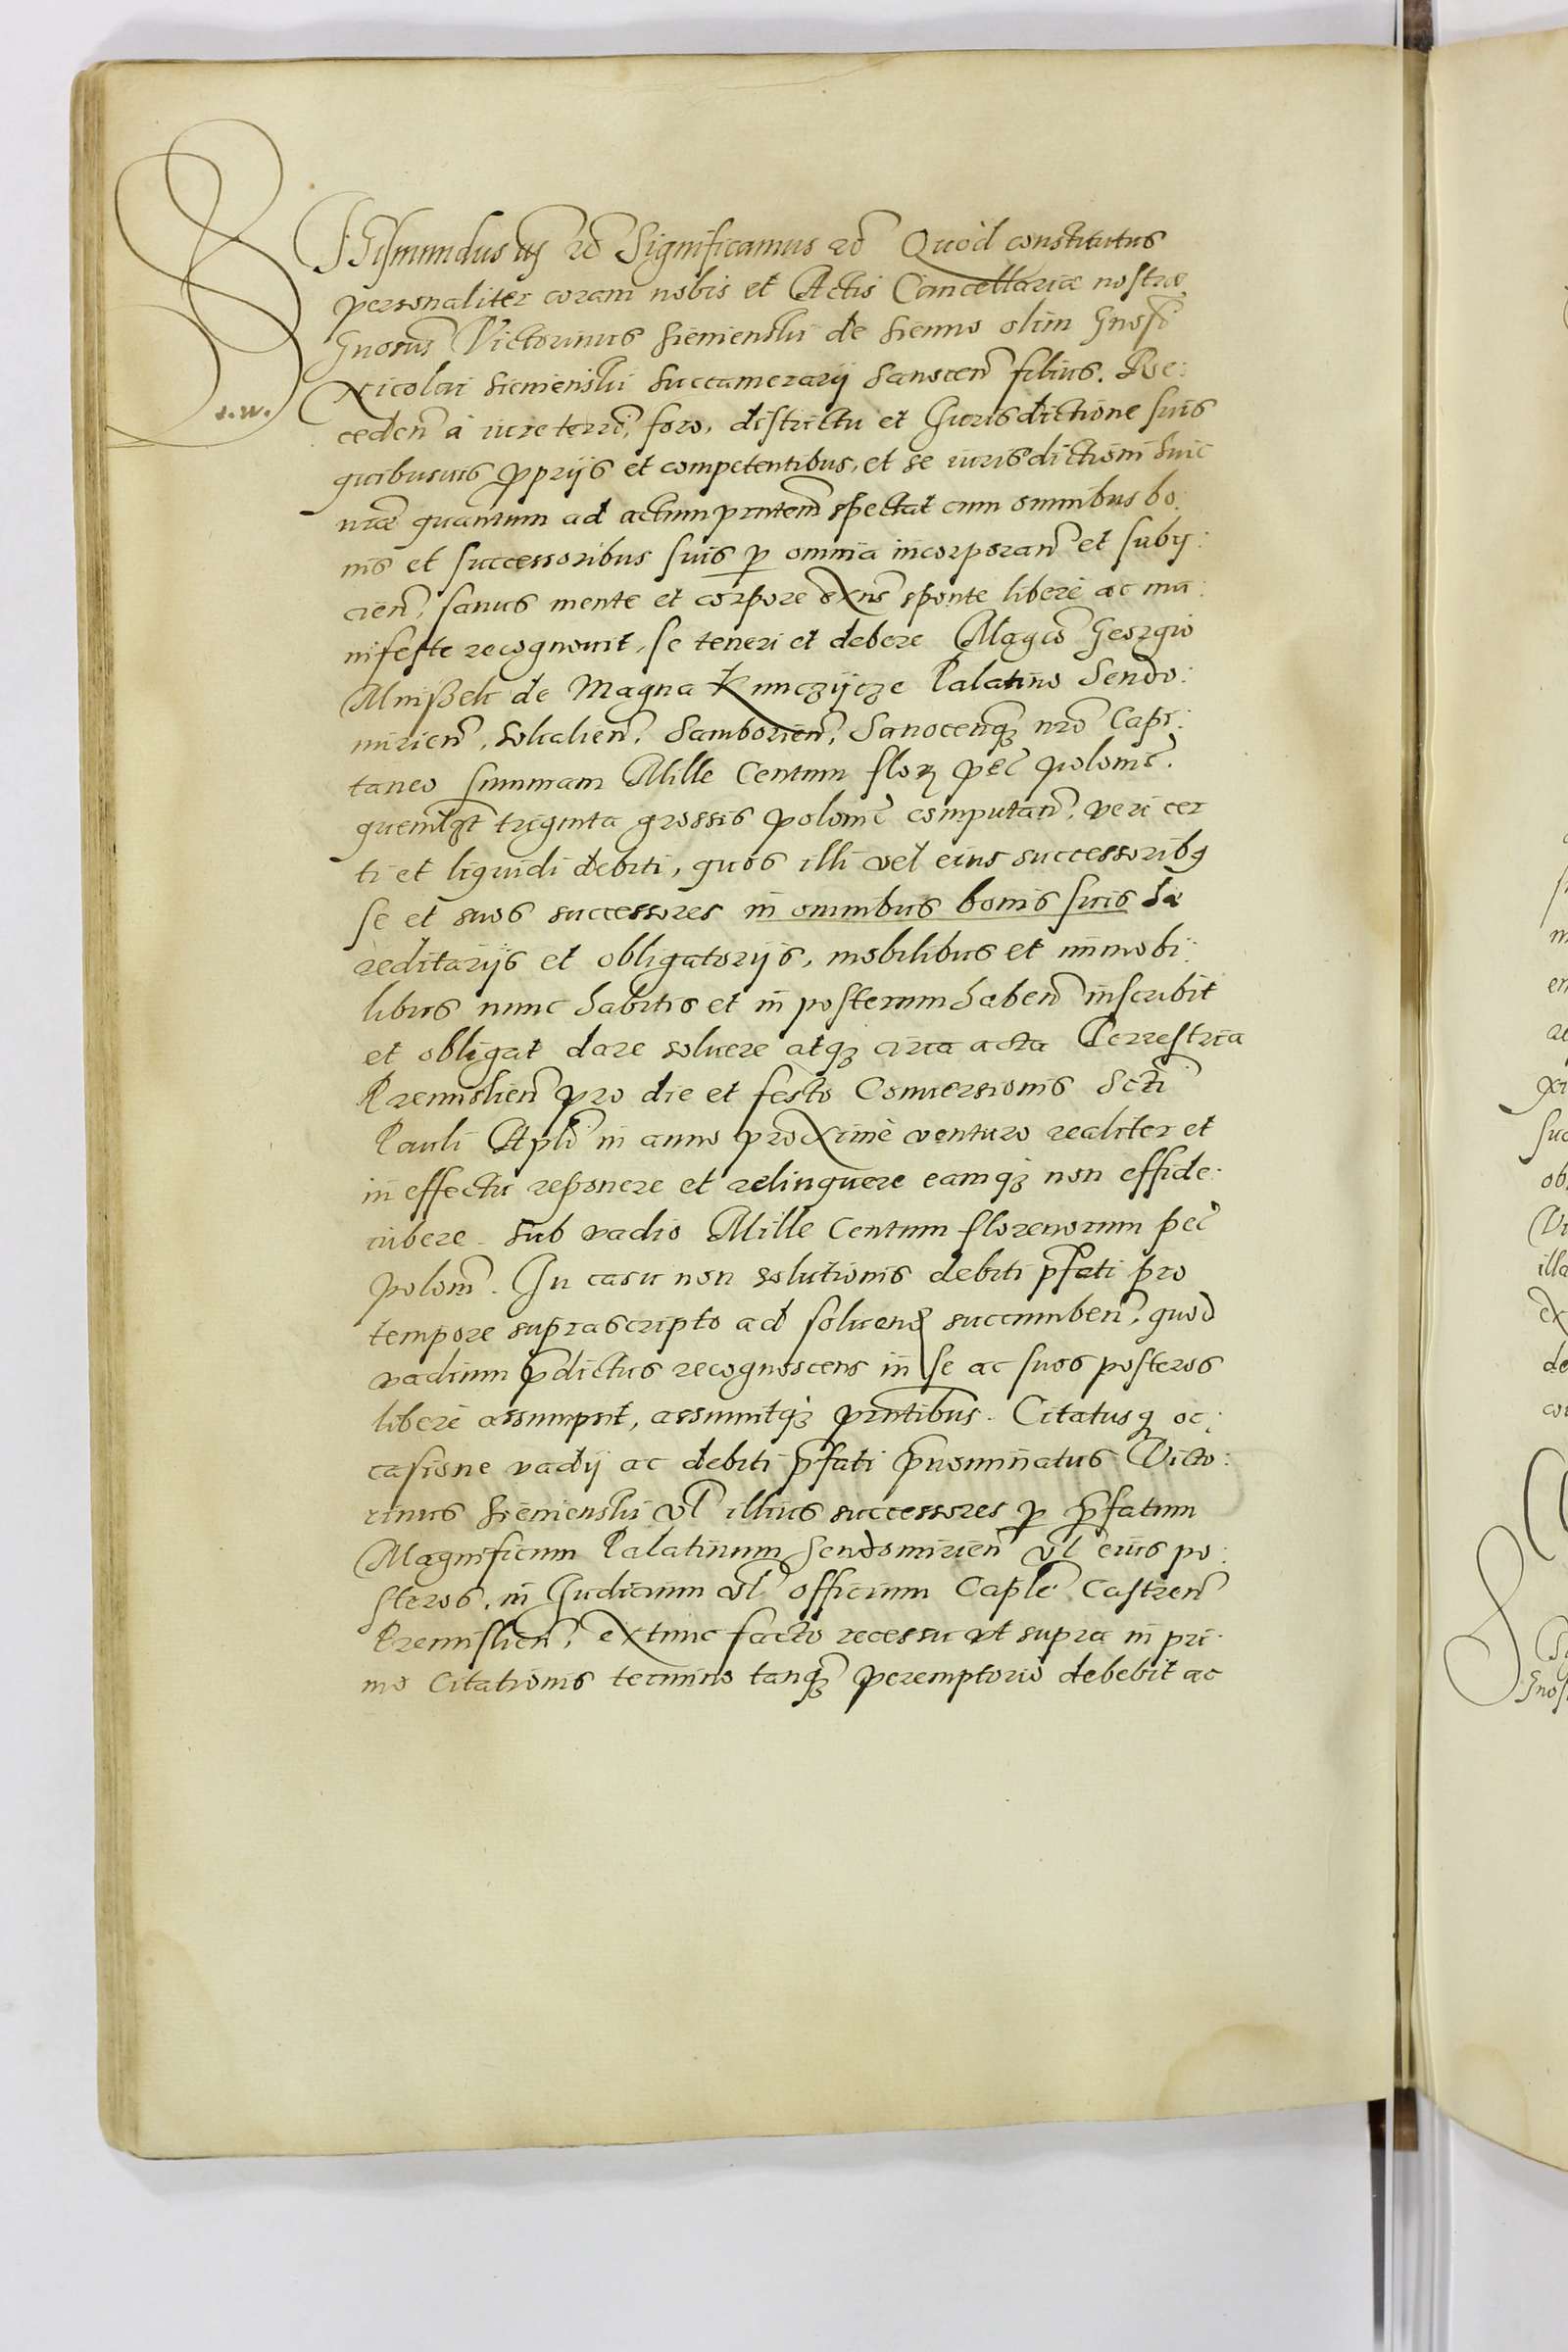 SIgismundus tts rc̃ Significamus rc̃ Quòd constitutus
personaliter coram nobis et Actis Cancellariæ nostræ
Gnosus Victorinus Sienienski de Sienno olim Gnosi
Nicolai Sienienski Succamerarij Sanocen̄ filius. Re:
s.w.
ceden̄ à iure terrē, foro, districtu et Iurisdictione suis
quibusuis ꝓprijs et competentibus, et se iurisdictioni huic
nr̄æ quantum ad actum pn̄tem spectat cum omnibus bo:
nis et successoribus suis ꝑ omnia incorporan̄ et subij:
cien̄, sanus mente et corpore exn̄s sponte liberè ac ma:
nifeste recognouit, se teneri et debere Magco Georgio
Mnißek de Magna Kunczijcze Palatino Sendo:
mirien̄, Solcalien̄, Samborien̄, Sanocenq̨ nr̄o Capi:
taneo summam Mille Centum floꝝ pec̄ polonic̄.
quemlꝫt triginta grossis polonic̄ computan̄, veri cer
ti et liquidi debiti, quos illi vel eius successoribꝯ
se et suos successores in omnibus bonis suis hæ
reditarijs et obligatorijs, mobilibus et immobi:
libus nunc habitis et in posterum haben̄ inscribit
et obligat dare soluere atqꝫ circa acta Terrestria
Premislien̄ pro die et festo Conuersionis Scti
Pauli Apli in anno proximè venturo realiter et
in effectu reponere et relinquere eamqꝫ non effide:
iubere. Sub vadio Mille Centum florenorum pec̄
polon̄. In casu non solutionis debiti p̄fati pro
tempore suprascripto ad soluend succumben̄, quod
vadium p̄dictus recognoscens in se ac suos posteros
liberè assumpsit, assumitqꝫ pn̄tibus. Citatusqꝫ oc:
casione vadij ac debiti p̄fati p̄nominatus Victo:
rinus Sienienski vl̄ illius successores ꝑ p̄fatum
Magnificum Palatinum Sendomirien̄ vl̄ eius po:
steros, in Iudicium vl̄ officium Caple Castren̄
Premislien̄, extunc facto recessu vt supra in pri:
mo Citationis termino tanqꝫ peremptorio debebit ac